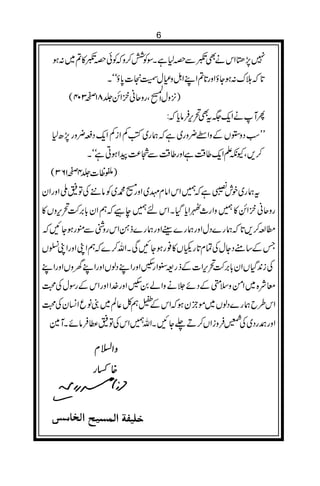 6
نہیں پڑھتا اس نے بھی تکبر سے حصہ لیا ہے۔ سو کوشش کرو کہ کوئی حصہ تکبر کا تم میں نہ ہو
تاکہ ہلاک نہ ہو جاؤ اور تا تم اپنے اہل وعیال سمیت نجات پاؤ‘‘۔
(نزول المسیح، روحانی خزائن جلد ۱۸ صفحہ ۴۰۳)
پھر آپ نے ایک جگہ یہ بھی تحریر فرمایا کہ:
’’سب دوستوں کے واسطے ضروری ہے کہ ہماری کتب کم از کم ایک دفعہ ضرور پڑھ لیا
کریں، کیونکہ علم ایک طاقت ہے اور طاقت سے شجاعت پیدا ہوتی ہے‘‘۔
(ملفوظات جلد ۴ صفحہ ۳۶۱)
یہ ہماری خوش نصیبی ہے کہ ہمیں اس امام مہدی اور مسیح محمدی کو ماننے کی توفیق ملی اور ان
روحانی خزائن کا ہمیں وارث ٹھہرایا گیا۔ اس لئے ہمیں چاہیے کہ ہم ان بابرکت تحریروں کا
مطالعہ کریں تاکہ ہمارے دل اور ہمارے سینے اور ہمارے ذہن اس روشنی سے منور ہو جائیں کہ
جس کے سامنے دجال کی تمام تاریکیاں کافور ہو جائیں گی۔ اللہ کرے کہ ہم اپنی اور اپنی نسلوں
کی زندگیاں ان بابرکت تحریرات کے ذریعہ سنوار سکیں اور اپنے دلوں اور اپنے گھروں اور اپنے
معاشرہ میں امن وسلامتی کے دئیے جلانے والے بن سکیں اور خدا اور اس کے رسول کی محبت
اس طرح ہمارے دلوں میں موجزن ہو کہ اس کے طفیل ہم کل عالم میں بنی نوع انسان کی محبت
اور ہمدردی کی شمعیں فروزاں کرتے چلے جائیں۔ اللہ ہمیں اس کی توفیق عطا فرمائے۔ آمین
والسلام
خاکسار
خليفة المسيح الخامس